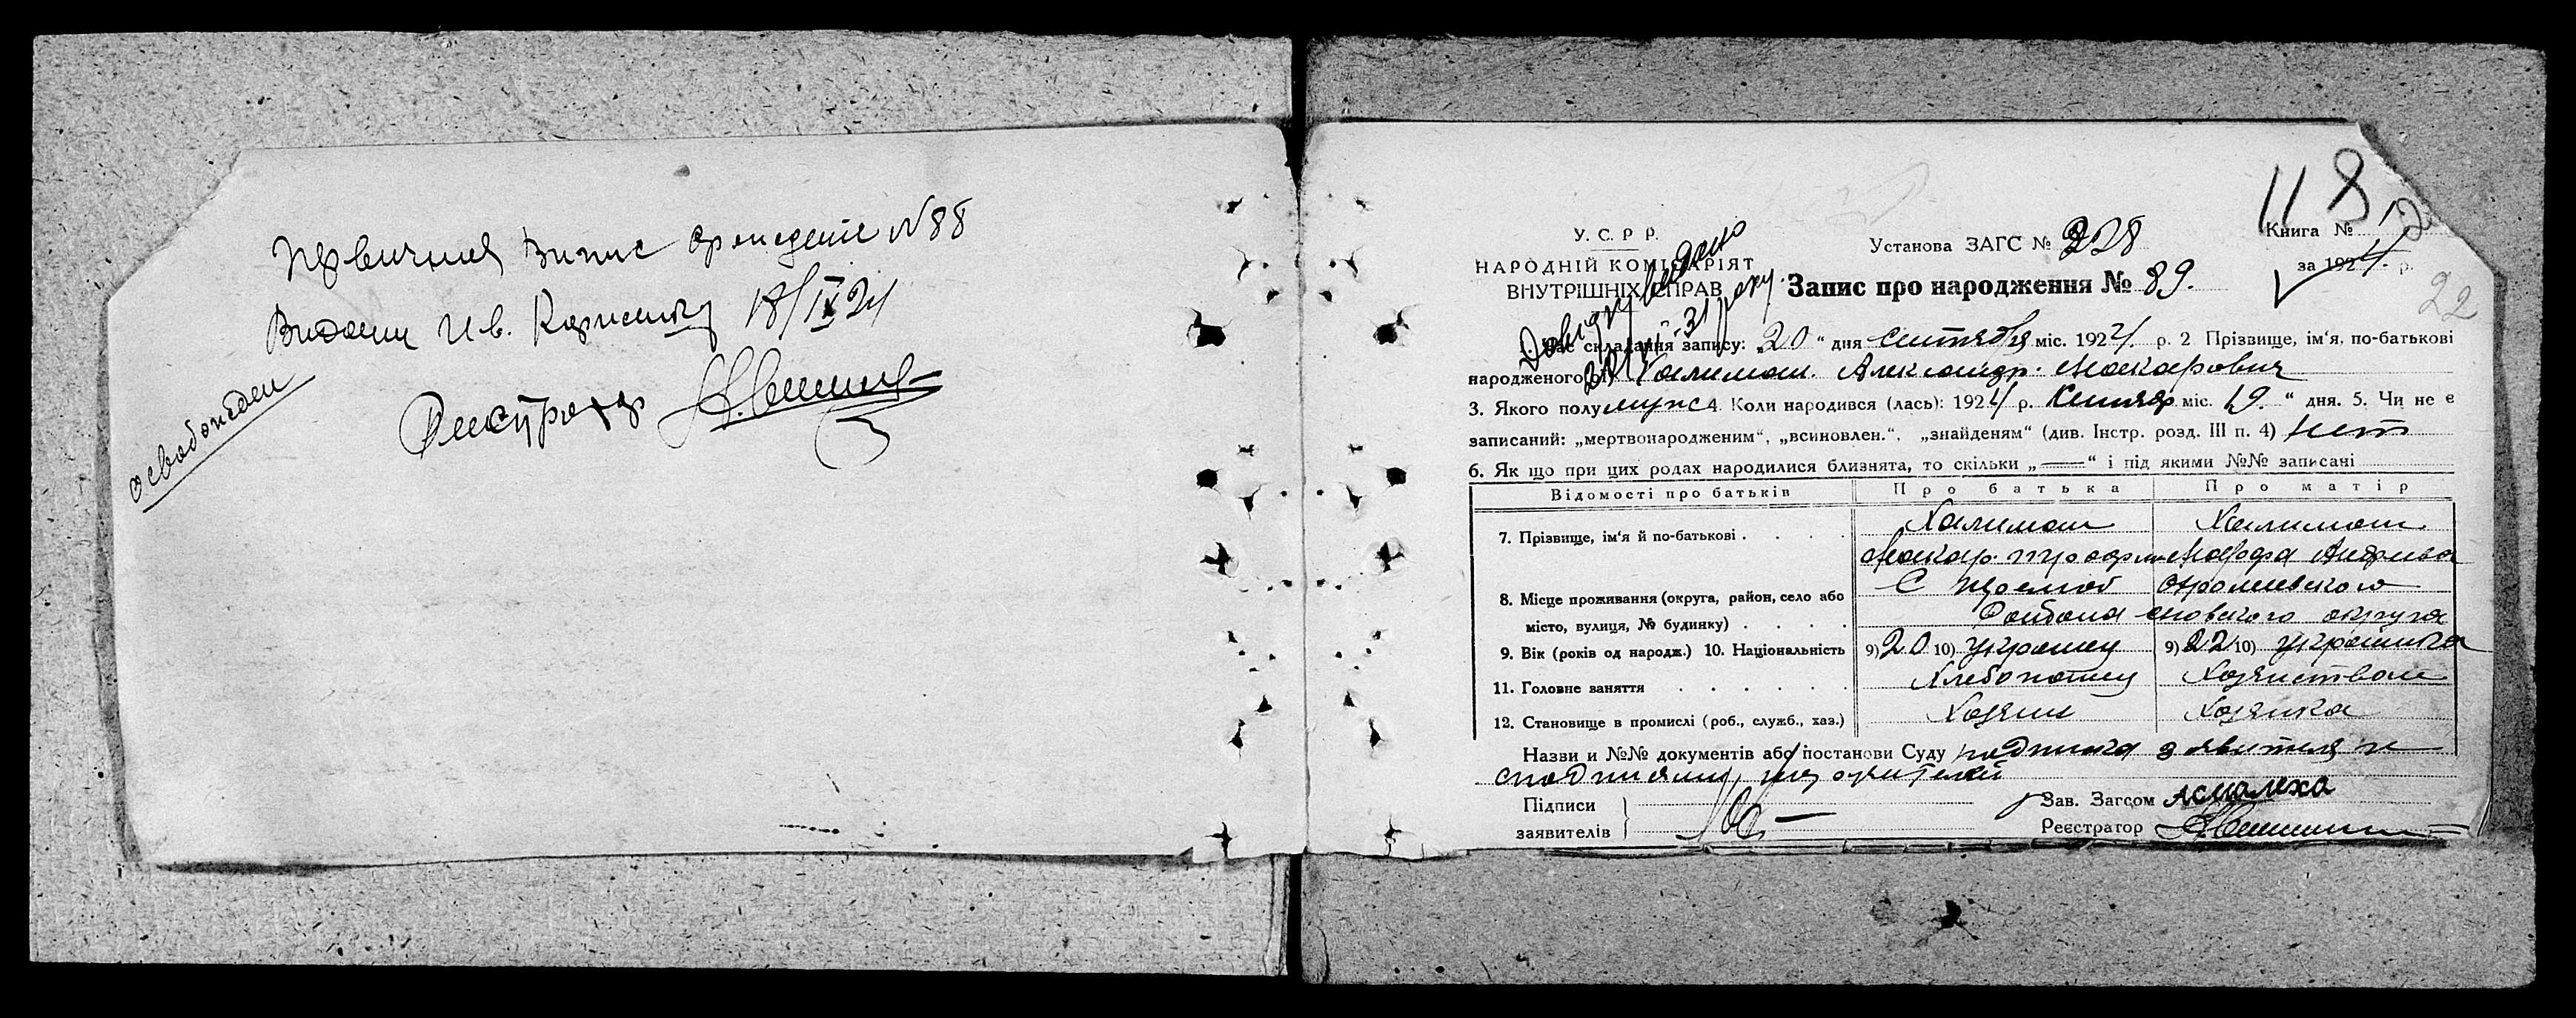 Первичная Випис о рождение N 88
Видани Ив. 18/IX 24
Реєстратор
освобожден
118
У. С. Р. Р.
НАРОДНІЙ КОМІСАРІЯТ
ВНУТРІШНІХ СПРАВ
Довідку видано
31 року
Установа ЗАГС № 228
Книга № 
за 1924 р.
22
Запис про народження № 89.
1. Час складання запису: „20“ дня сентября міс. 1924 р. 2 Прізвище, ім‘я, по-батькові
народженого(ої) Халимон Александр Макарович
3. Якого полу мужс 4. Коли народився (лась): 1924 р. Сентяр міс. 19. “ дня. 5. Чи не є
записаний: „мертвонародженим“, „всиновлен.“, „знайденям“ (див. Інстр. розд. III п. 4) нет
6. Як що при цих родах народилися близнята, то скільки „——“ і під якими №№ записані
Відомості про батьків Про батька Про матір
7. Прізвище, ім‘я й по-батькові . . . . Халимон Халимон
Макар
8. Місце проживання (округа, район, село або С
місто, вулиця, № будинку) . . . . Района округа
9. Вік (років од народж.) 10. Національність 9) 20 10) украинец 9) 22 10) украинка
11. Головне заняття . . . . . . Хлебопашец Хозяиством
12. Становище в промислі (роб., служб., хаз.) Хозяин Хозяика
Назви и №№ документів або постанови Суду подписа заявителя не
Підписи
заявителів
Зав. Загсом
Реєстратор